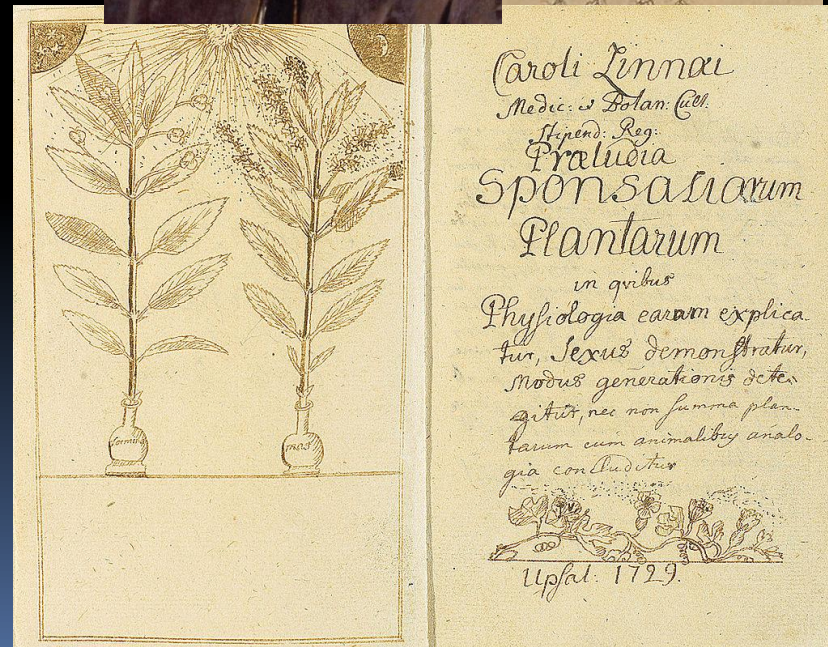 foemina
mas
Caroli Linnæi
Medic: & Botan: Cult.
Stipend: Reg:
Præludia
Sponsaliarum
Plantarum
in qvibus
Physiologia earum explica-
tur, Sexus demonstratur,
Modus generationis dete-
gitur, nec non summa plan-
tarum cum animalibus analo-
gia concluditur
Upsal: 1729.